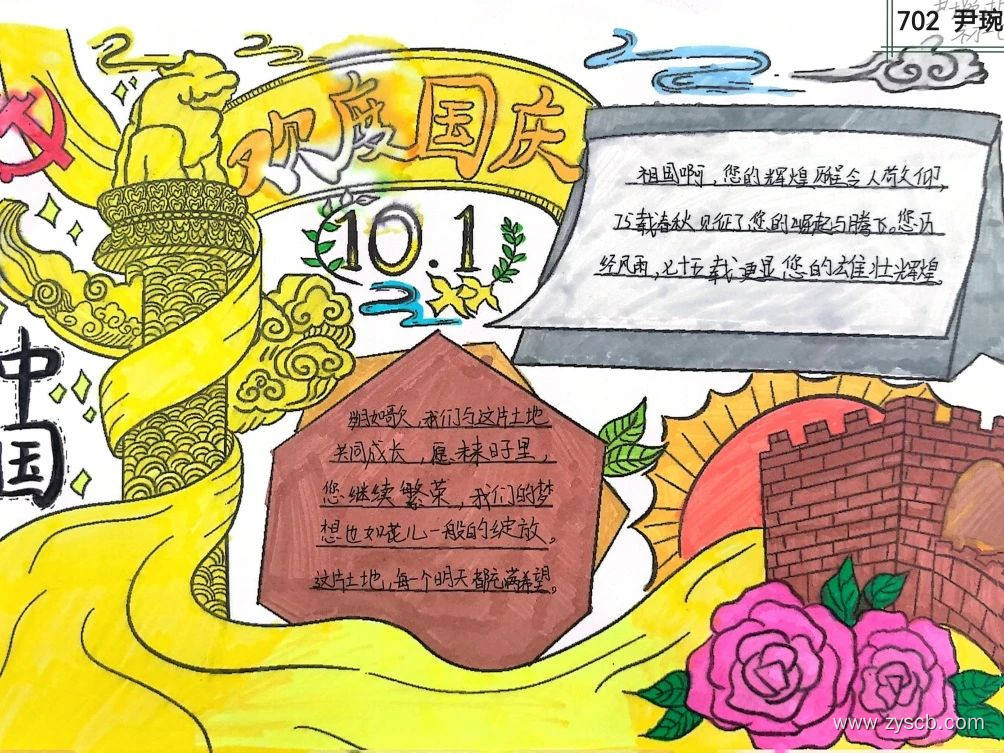 702 尹琬
欢度国庆
10.1
祖国啊,您的辉煌,
75载春秋见证了您的崛起与腾飞。您历
经风雨,七十五载更显您的雄壮辉煌。
中国
如歌,我们与这片土地
共同成长,愿未来日子里,
您继续繁荣,我们的梦
想也如花儿一般的绽放。
这片土地,每一个明天都充满希望。
www.zyscb.com